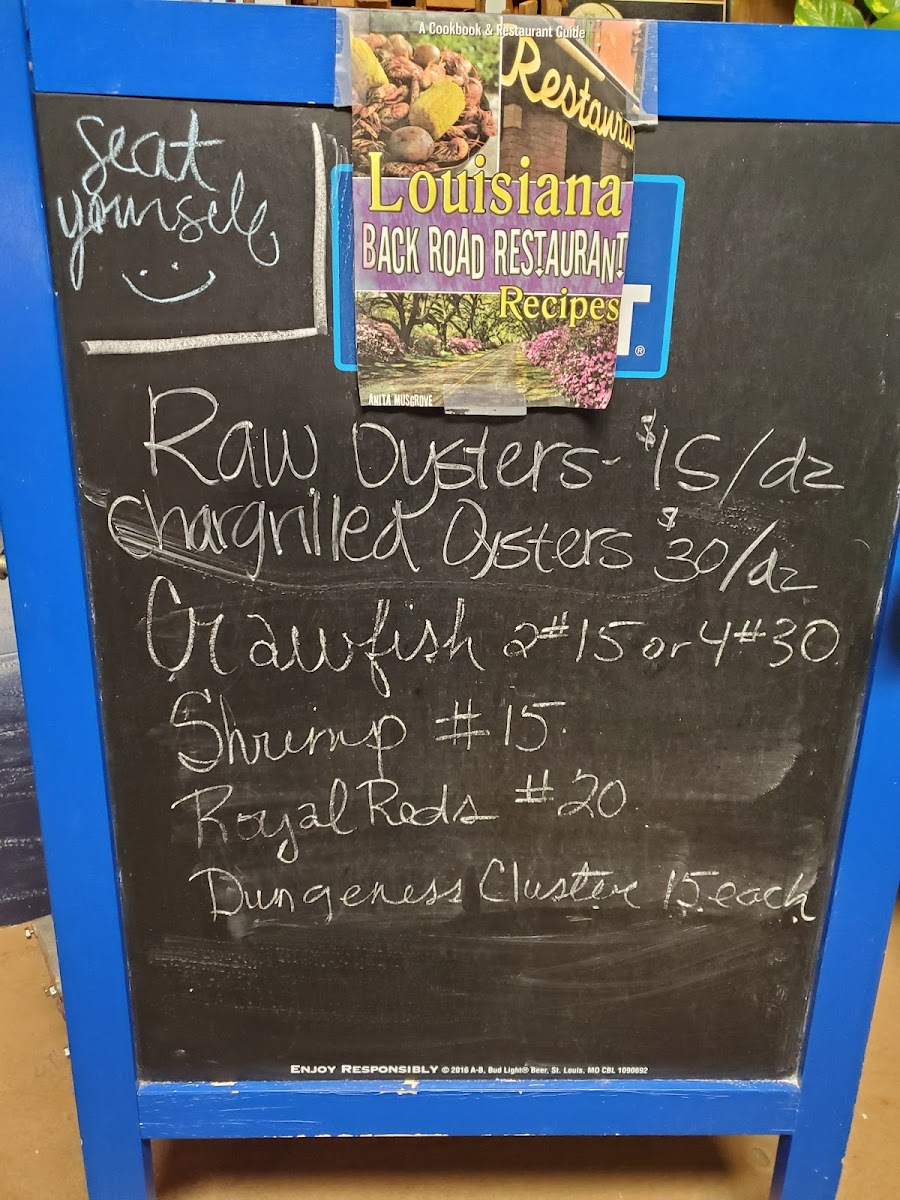 A Cookbook & Restaurant Guide
Restaura
Louisiana
BACK ROAD RESTAURANT
Recipes
ANITA MUSGROVE
T®
seat
yourself
Raw Oysters- $15/dz
Chargrilled Oysters $30/dz
Crawfish 2# 15 or 4# 30
Shrimp # 15.
Royal Reds # 20.
Dungeness Cluster 15 each
ENJOY RESPONSIBLY © 2016 A-B, Bud Light® Beer, St. Louis, MO CBL 1090692